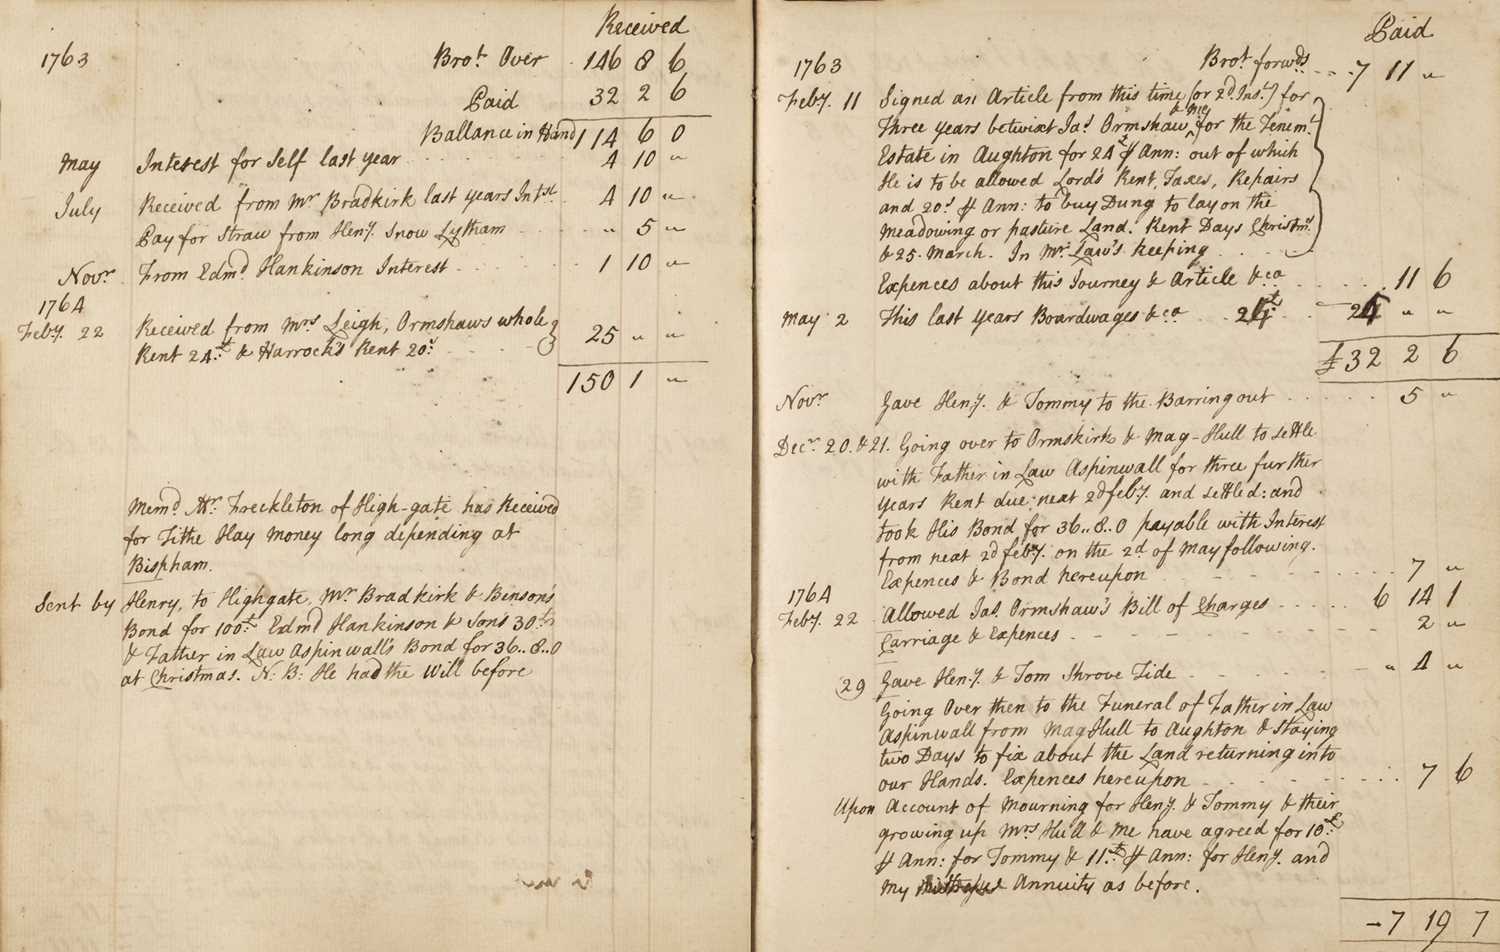 Received
1763 Bro.t Over 146 8 6
Paid 32 2 6
Ballance in Hand 114 6 0
May Interest for Self last year 4 10 "
July Received from Mr Bradkirk last years Int.st 4 10 "
Pay for Straw from Hen.y Snow Lytham " 5 "
Nov.r From Edm.d Hankinson Interest 1 10 "
1764
Feb.y 22 Received from Mrs Leigh, Ormshaws whole
Rent 24.£ & Harrock's Rent 20.s 25 " "
150 1 "
Mem.d Mr. Freckleton of High-gate has Received
for Tithe Hay Money long depending at
Bispham.
Sent by Henry, to Highgate, Mr Bradkirk & Benson's
Bond for 100.£ Edm.d Hankinson & Sons 30.£
& Father in Law Aspinwall's Bond for 36..8..0
at Christmas. N: B: He had the Will before
Paid
1763 Bro.t forw.ds 7 11 "
Feb.y 11 Signed an Article from this time (or 2.d Ins.t) for
Three years betwixt Ja.s Ormshaw & me, for the Tenem.t
Estate in Aughton for 24£ ℔ Ann: out of which
He is to be allowed Lord's Rent, Taxes, Repairs
and 20.s ℔ Ann: to buy Dung to lay on the
Meadowing or pasture Land. Rent Days Christm.s
& 25. March. In Mr. Law's keeping
Expences about this Journey & Article &ca 11 6
May 2 This last years Boardwages &ca 24£ 24 " "
£32 2 6
Nov.r Gave Hen.y & Tommy to the Barring out 5 "
Dec.r 20. & 21. Going over to Ormskirk & Mag-Hull to settle
with Father in Law Aspinwall for three further
years Rent due: next 2.d feb.y and settled: and
took His Bond for 36..8..0 payable with Interest
from next 2.d feb.y on the 2.d of May following.
Expences & Bond hereupon 7 "
1764
Feb.y 22 Allowed Ja.s Ormshaw's Bill of Charges 6 14 1
Carriage & Expences 2 "
29 Gave Hen.y & Tom Shrove Tide " 4 "
Going Over then to the Funeral of Father in Law
Aspinwall from MagHull to Aughton & staying
two Days to fix about the Land returning into
our Hands. Expences hereupon 7 6
Upon Account of Mourning for Hen.y & Tommy & their
growing up Mrs Hull & Me have agreed for 10.£
℔ Ann: for Tommy & 11.£ ℔ Ann: for Hen.y and
my Annuity as before.
7 19 7